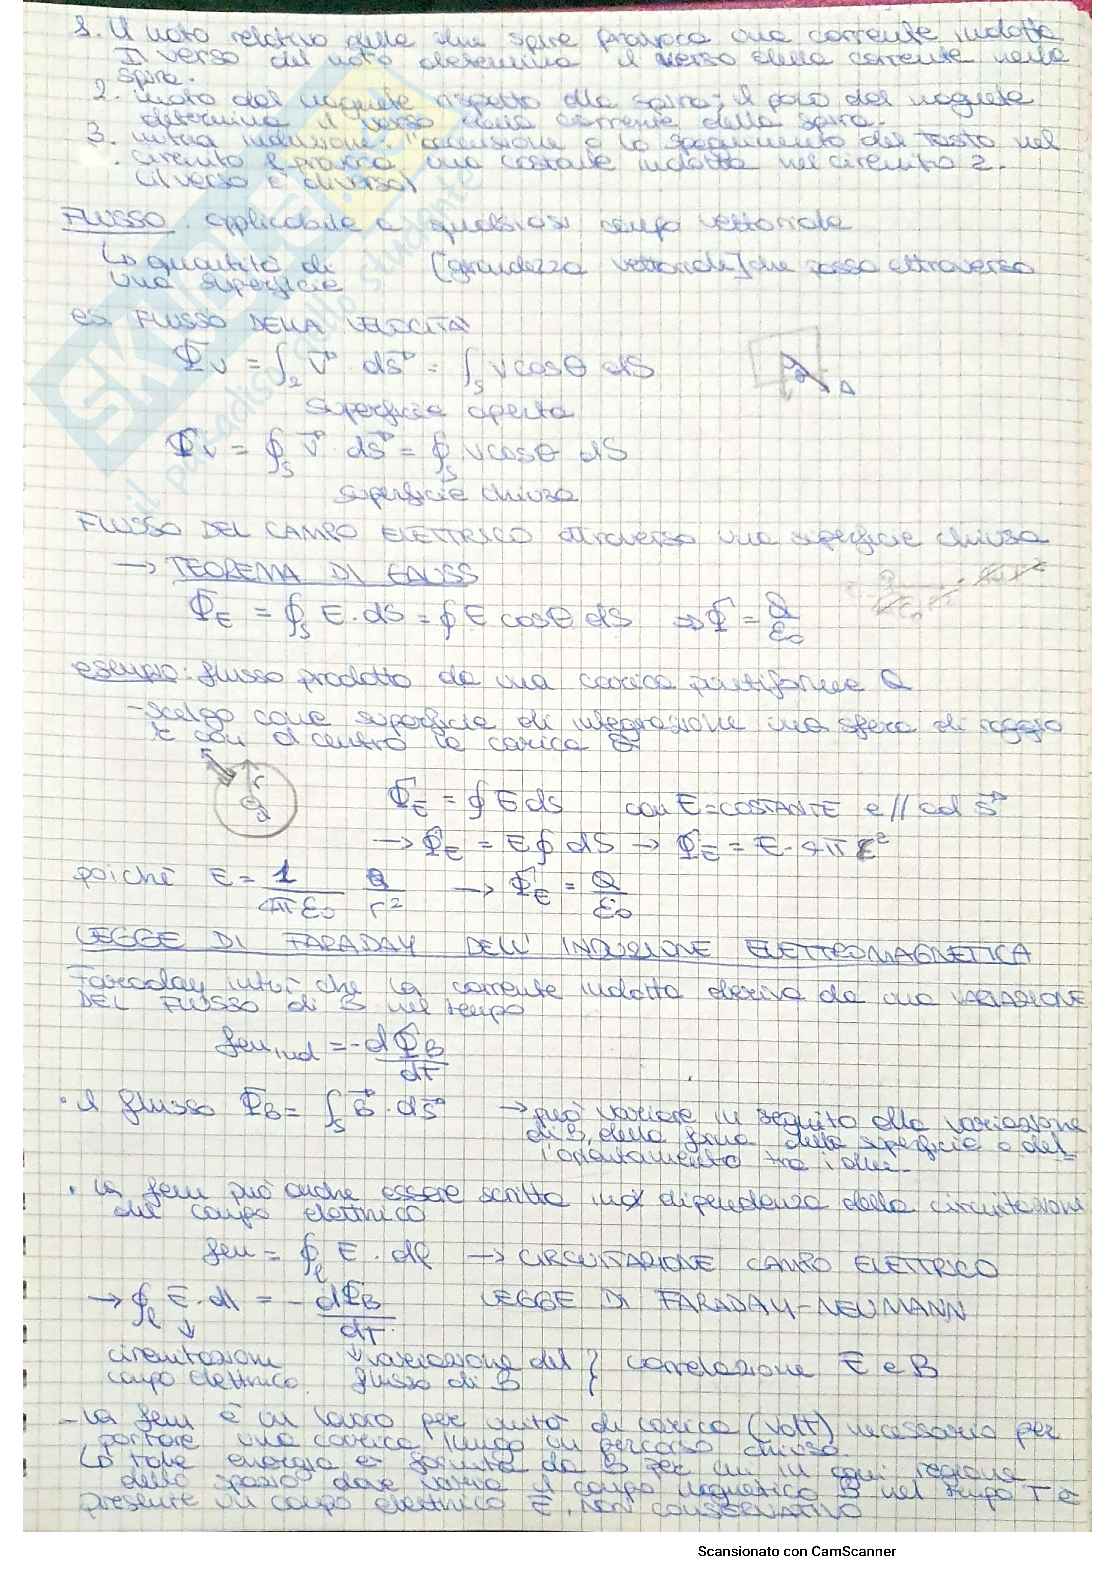 1. Il moto relativo delle due spire provoca una corrente indotta
Il verso del moto determina il verso della corrente nella
spira.
2. moto del magnete rispetto alla spira; il polo del magnete
determina il verso della corrente della spira.
3. mutua induzione: l'accensione o lo spegnimento del tasto nel
circuito 1 provoca una corrente indotta nel circuito 2.
(il verso è diverso)
FLUSSO: applicabile a qualsiasi campo vettoriale
↳ quantità di (grandezza vettoriale) che passa attraverso
una superficie
es. FLUSSO DELLA VELOCITÀ
Φv = ∫₂ v⃗ ds⃗ = ∫s v cosθ dS
superficie aperta
Φv = ∮s v⃗ · ds⃗ = ∮s v cosθ dS
superficie chiusa
FLUSSO DEL CAMPO ELETTRICO attraverso una superficie chiusa
→ TEOREMA DI GAUSS
ΦE = ∮s E · dS = ∮ E cosθ dS ⇒ Φ = Q/ε₀
esempio: flusso prodotto da una carica puntiforme Q
- scelgo come superficie di integrazione una sfera di raggio
r con al centro la carica Q
r
Q
ΦE = ∮ E ds con E = COSTANTE e // ad S⃗
→ ΦE = E ∮ dS → ΦE = E · 4π r²
poiché E = 1/4πε₀ Q/r² → ΦE = Q/ε₀
LEGGE DI FARADAY DELL'INDUZIONE ELETTROMAGNETICA
Faraday intuì che la corrente indotta deriva da una VARIAZIONE
DEL FLUSSO di B nel tempo
fem,ind = - dΦB/dT
• il flusso ΦB = ∫s B⃗ · ds⃗ → può variare in seguito alla variazione
di B, della forma della superficie o del-
l'orientamento tra i due.
• la fem può anche essere scritta in dipendenza della circuitazione
del campo elettrico
fem = ∮ℓ E · dℓ → CIRCUITAZIONE CAMPO ELETTRICO
→ ∮ℓ E · dl = - dΦB/dT LEGGE DI FARADAY-NEUMANN
circuitazione variazione del } correlazione E e B
campo elettrico flusso di B
- la fem è un lavoro per unità di carica (volt) necessario per
portare una carica lungo un percorso chiuso.
↳ tale energia è fornita da B per cui in ogni regione
dello spazio dove varia il campo magnetico B nel tempo T è
presente un campo elettrico E, NON CONSERVATIVO
SKUOLA
Scansionato con CamScanner